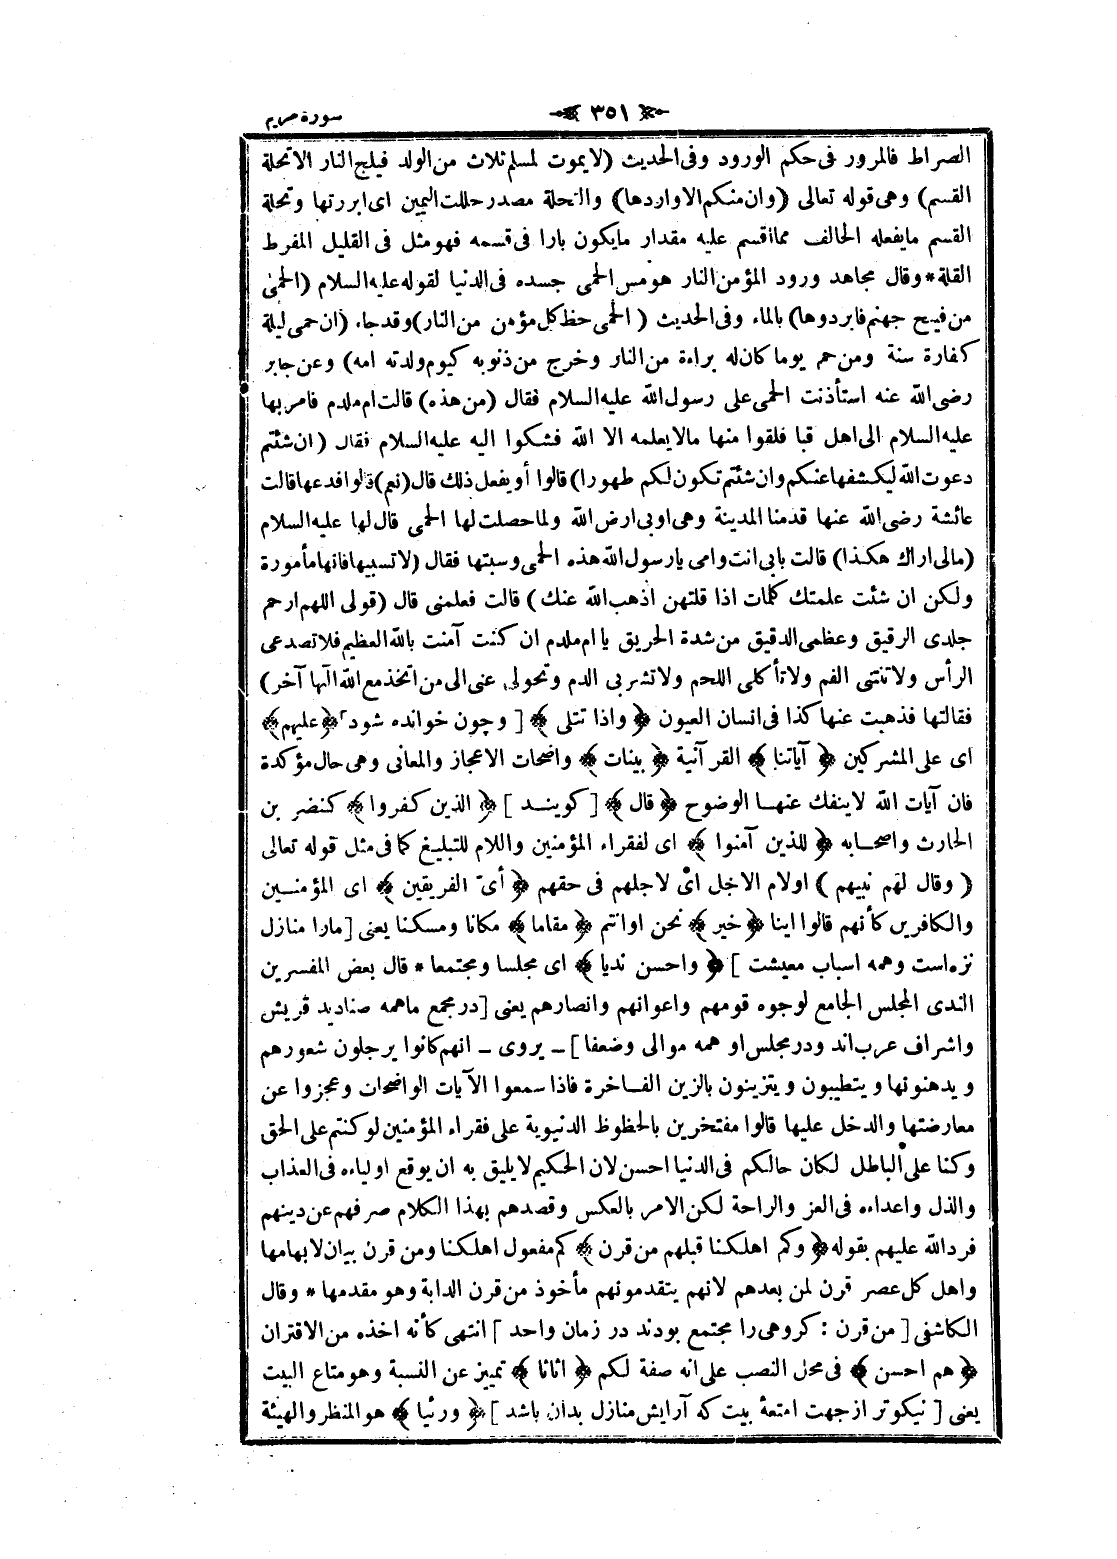 سورة مريم
٣٥١
الصراط فالمرور فى حكم الورود وفى الحديث (لايموت لمسلم ثلاث من الولد فيلج النار الا تحلة
القسم) وهى قوله تعالى (وان منكم الا واردها) والتحلة مصدر حللت اليمين اى ابررتها وتحلة
القسم مايفعله الحالف مما اقسم عليه مقدار مايكون بارا فى قسمه فهو مثل فى القليل المفرط
القلة * وقال مجاهد ورود المؤمن النار هو مس الحمى جسده فى الدنيا لقوله عليه السلام (الحمى
من فيح جهنم فابردوها) بالماء وفى الحديث (الحمى حظ كل مؤمن من النار) وقد جاء (ان حمى ليلة
كفارة سنة ومن حم يوما كان له براءة من النار وخرج من ذنوبه كيوم ولدته امه) وعن جابر
رضى الله عنه استأذنت الحمى على رسول الله عليه السلام فقال (من هذه) قالت ام ملدم فامر بها
عليه السلام الى اهل قبا فلقوا منها مالا يعلمه الا الله فشكوا اليه عليه السلام فقال (ان شئتم
دعوت الله ليكشفها عنكم وان شئتم تكون لكم طهورا) قالوا أو يفعل ذلك قال (نعم) قالوا فدعها قالت
عائشة رضى الله عنها قدمنا المدينة وهى اوبى ارض الله ولما حصلت لها الحمى قال لها عليه السلام
(مالى اراك هكذا) قالت بابى انت وامى يارسول الله هذه الحمى وسبتها فقال (لاتسبيها فانها مأمورة
ولكن ان شئت علمتك كلمات اذا قلتهن اذهب الله عنك) قالت فعلمنى قال (قولى اللهم ارحم
جلدى الرقيق وعظمى الدقيق من شدة الحريق يا ام ملدم ان كنت آمنت بالله العظيم فلا تصدعى
الرأس ولا تنتنى الفم ولا تأكلى اللحم ولا تشربى الدم وتحولى عنى الى من اتخذ مع الله الها آخر)
فقالتها فذهبت عنها كذا فى انسان العيون ﴿ واذا تتلى ﴾ [ وچون خوانده شود ] ﴿ عليهم ﴾
اى على المشركين ﴿ آياتنا ﴾ القرآنية ﴿ بينات ﴾ واضحات الاعجاز والمعانى وهى حال مؤكدة
فان آيات الله لاينفك عنها الوضوح ﴿ قال ﴾ [ كويند ] ﴿ الذين كفروا ﴾ كنضر بن
الحارث واصحابه ﴿ للذين آمنوا ﴾ اى لفقراء المؤمنين واللام للتبليغ كما فى مثل قوله تعالى
( وقال لهم نبيهم ) اولام الاجل اى لاجلهم فى حقهم ﴿ أىّ الفريقين ﴾ اى المؤمنين
والكافرين كأنهم قالوا اينا ﴿ خير ﴾ نحن او انتم ﴿ مقاما ﴾ مكانا ومسكنا يعنى [ مارا منازل
نزه است وهمه اسباب معيشت ] ﴿ واحسن نديا ﴾ اى مجلسا ومجتمعا * قال بعض المفسرين
الندى المجلس الجامع لوجوه قومهم واعوانهم وانصارهم يعنى [ در مجمع ماهمه صناديد قريش
واشراف عرب اند ودر مجلس او همه موالى وضعفا ] ـ يروى ـ انهم كانوا يرجلون شعورهم
ويدهنونها ويتطيبون ويتزينون بالزين الفاخرة فاذا سمعوا الآيات الواضحات وعجزوا عن
معارضتها والدخل عليها قالوا مفتخرين بالحظوظ الدنيوية على فقراء المؤمنين لو كنتم على الحق
وكنا على الباطل لكان حالكم فى الدنيا احسن لان الحكيم لايليق به ان يوقع اولياءه فى العذاب
والذل واعداءه فى العز والراحة لكن الامر بالعكس وقصدهم بهذا الكلام صرفهم عن دينهم
فرد الله عليهم بقوله ﴿ وكم اهلكنا قبلهم من قرن ﴾ كم مفعول اهلكنا ومن قرن بيان لابهامها
واهل كل عصر قرن لمن بعدهم لانهم يتقدمونهم مأخوذ من قرن الدابة وهو مقدمها * وقال
الكاشفى [ من قرن : كروهى را مجتمع بودند در زمان واحد ] انتهى كأنه اخذه من الاقتران
﴿ هم احسن ﴾ فى محل النصب على انه صفة لكم ﴿ اثاثا ﴾ تمييز عن النسبة وهو متاع البيت
يعنى [ نيكوتر از جهت امتعهٔ بيت كه آرايش منازل بدان باشد ] ﴿ ورئيا ﴾ هو المنظر والهيئة